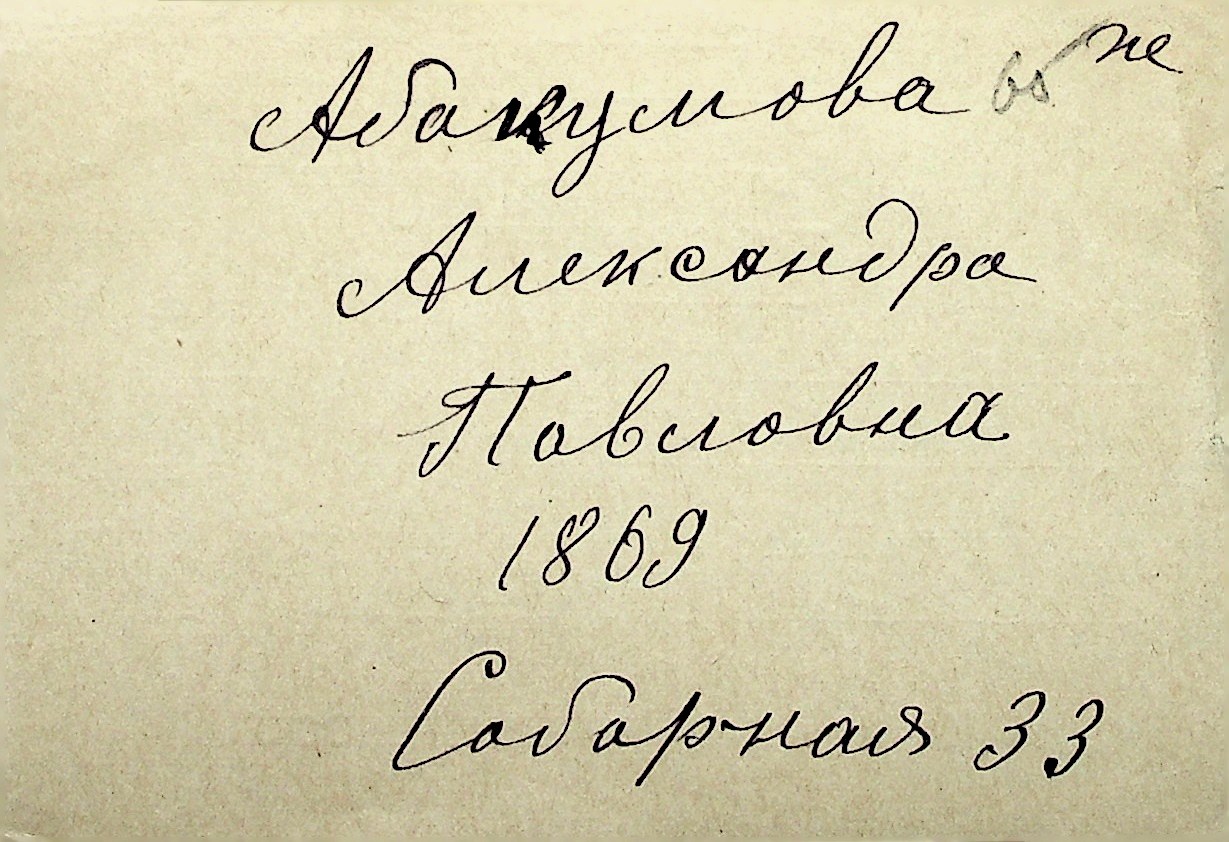 Абакумова
Александра
Павловна
1869
Соборная 33